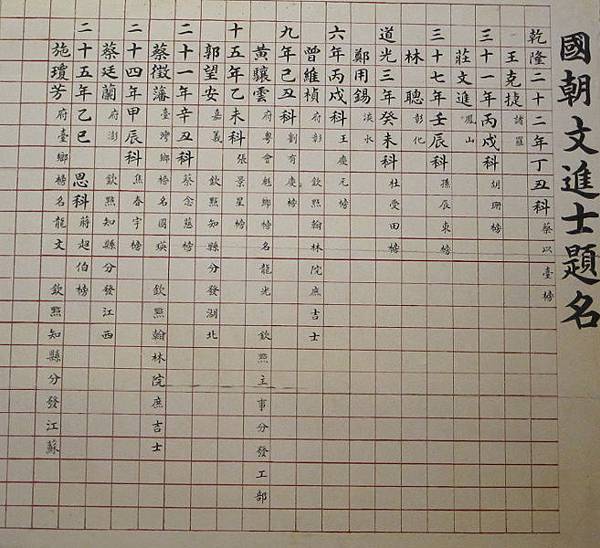 國朝文進士題名
乾隆二十二年丁丑科 蔡以臺榜
王克捷 諸羅
三十一年丙戌科 胡珊榜
莊文進 鳳山
三十七年壬辰科 孫辰東榜
林聰 彰化
道光三年癸未科 杜受田榜
鄭用錫 淡水
六年丙戌科 王慶元榜
曾維楨 府彰 欽點翰林院庶吉士
九年己丑科 劉有慶榜
黃驤雲 府粵會魁鄉榜名龍光 欽點主事分發工部
十五年乙未科 張景星榜
郭望安 嘉義 欽點知縣分發湖北
二十一年辛丑科 蔡念慈榜
蔡徵藩 臺灣鄉榜名國瑛 欽點翰林院庶吉士
二十四年甲辰科 焦春宇榜
蔡廷蘭 府澎 欽點知縣分發江西
二十五年乙巳 恩科 蔣超伯榜
施瓊芳 府臺鄉榜名龍文 欽點知縣分發江蘇